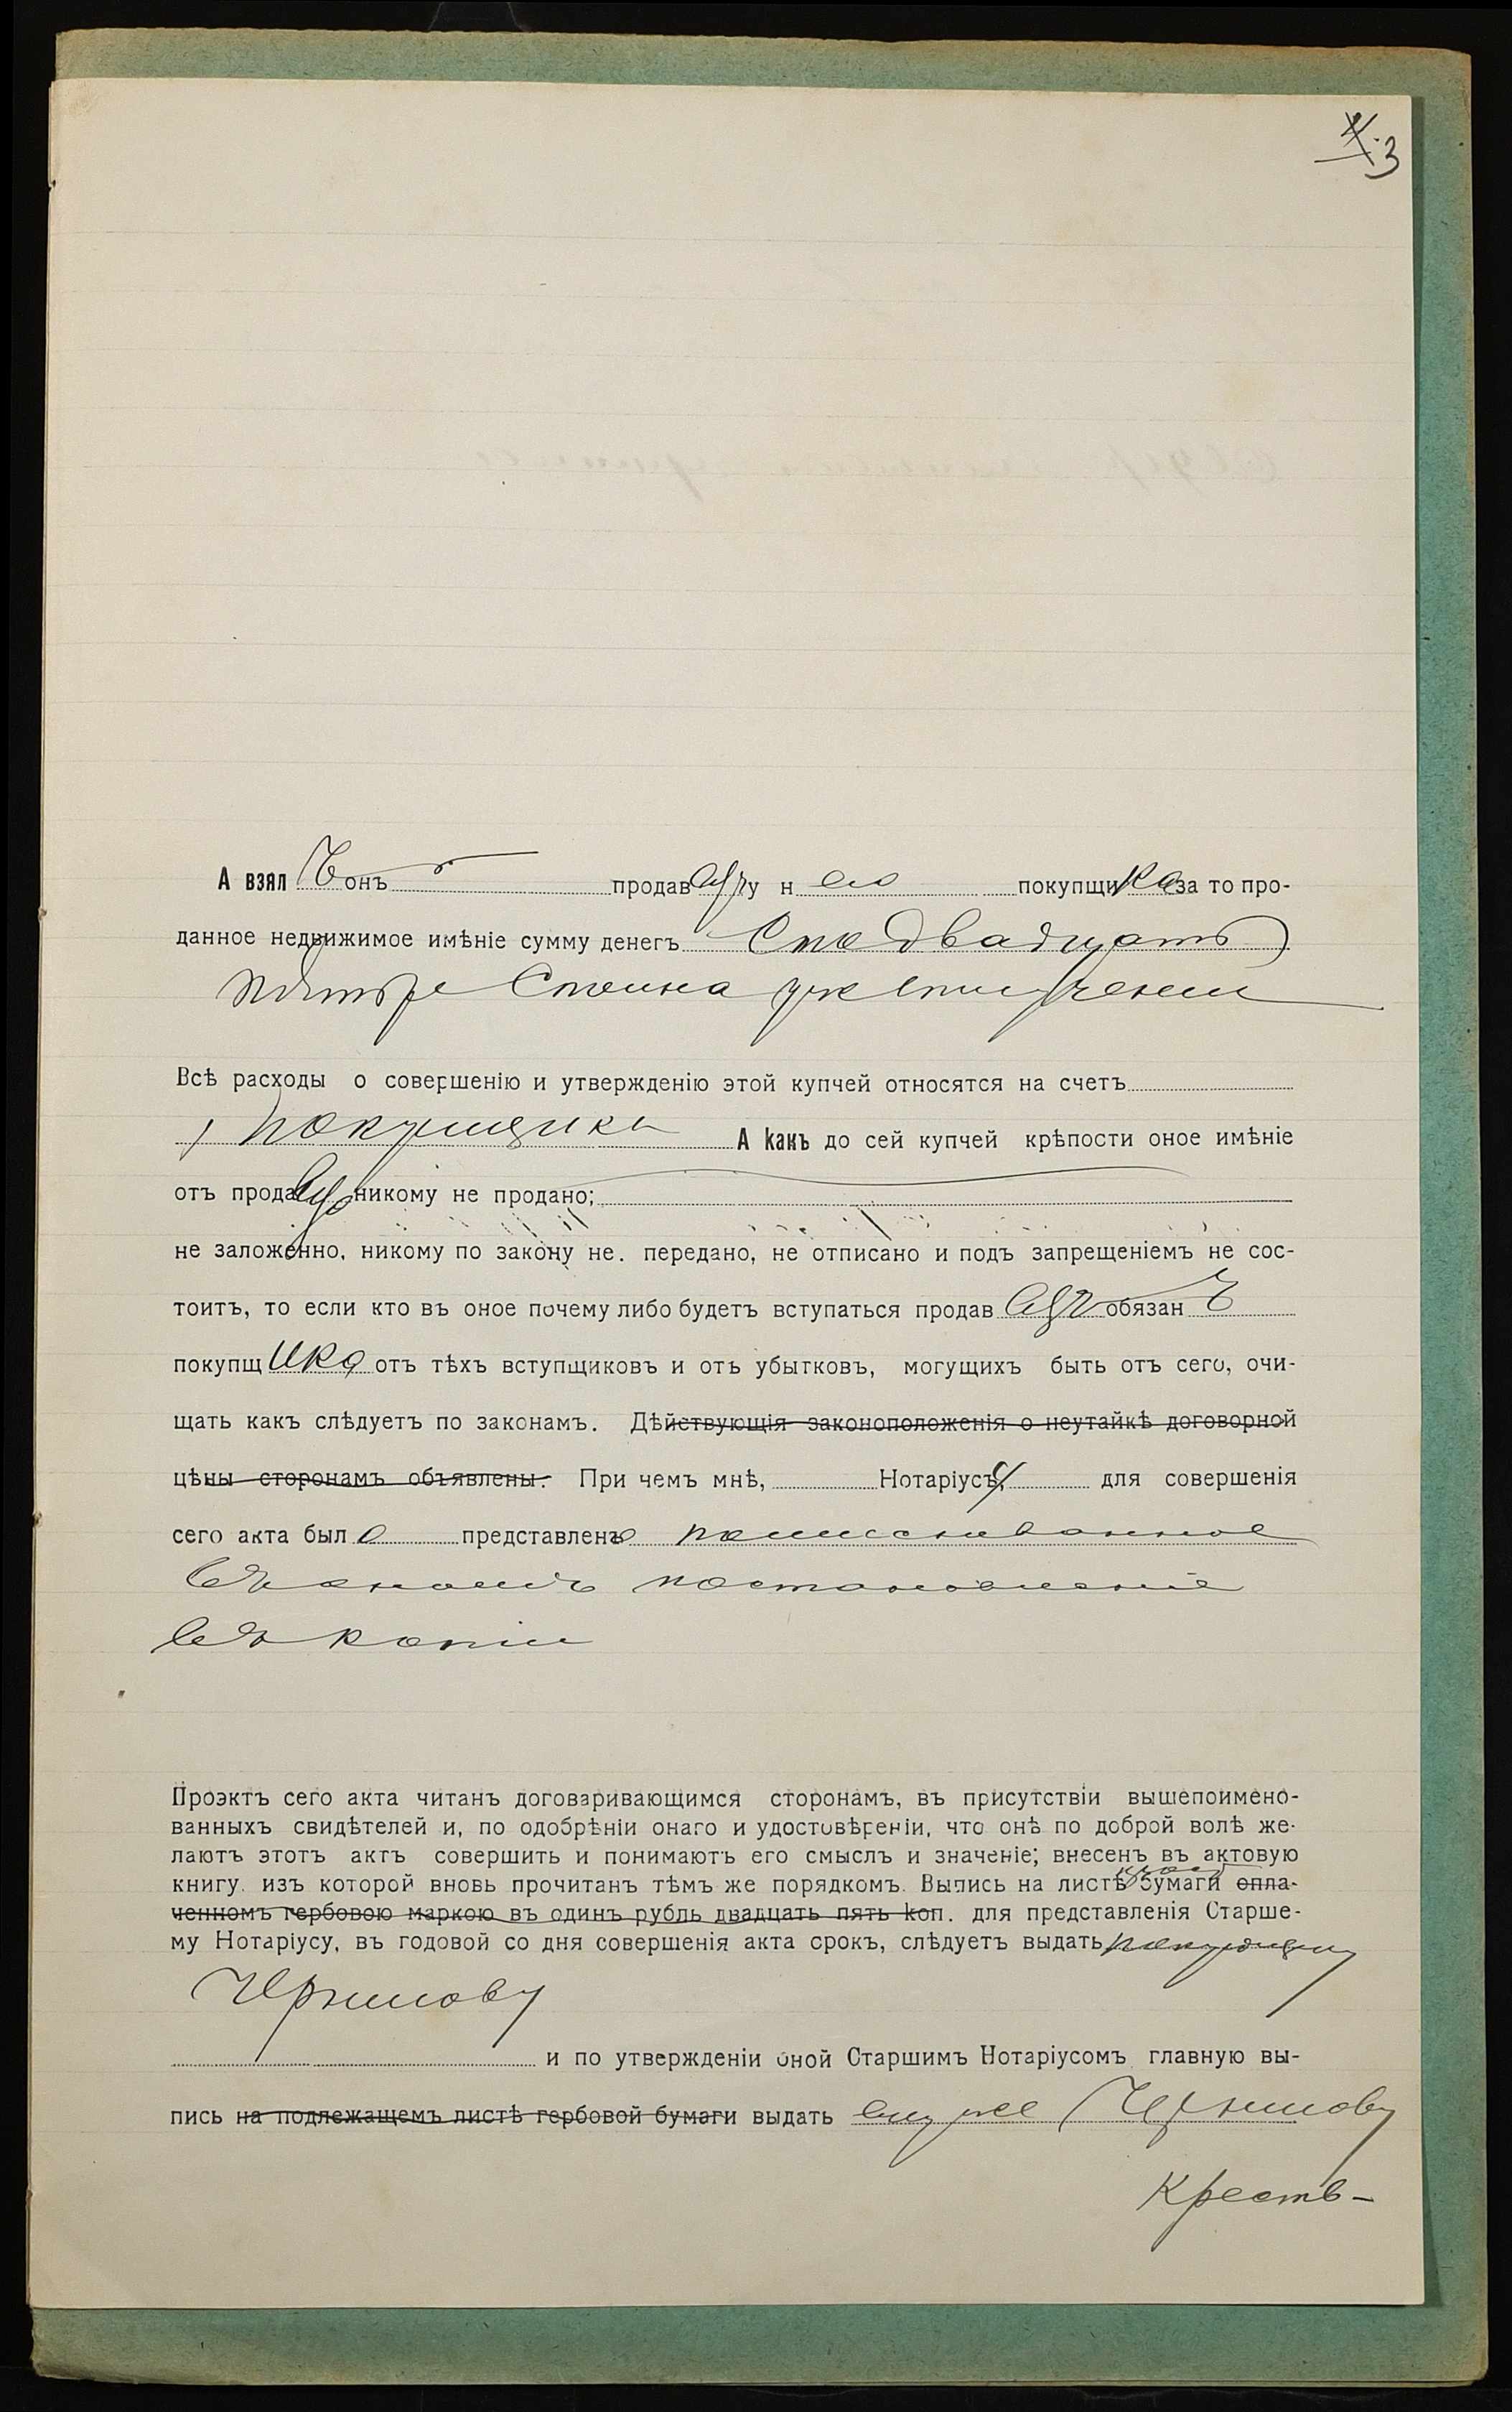 3
А взялъ онъ продавецъ у н его покупщика за то про-
данное недвижимое имѣніе сумму денегъ Сто двадцать
пять р
Всѣ расходы о совершенію и утвержденію этой купчей относятся на счетъ
покупщика А какъ до сей купчей крѣпости оное имѣніе
отъ продавца никому не продано;
не заложенно, никому по закону не. передано, не отписано и подъ запрещеніемъ не сос-
тоитъ, то если кто въ оное почему либо будетъ вступаться продавецъ обязанъ
покупщика отъ тѣхъ вступщиковъ и отъ убытковъ, могущихъ быть отъ сего, очи-
щать какъ слѣдуетъ по законамъ. Дѣйствующія законоположенія о неутайкѣ договорной
цѣны сторонамъ объявлены. При чемъ мнѣ, Нотаріусу, для совершенія
сего акта было представлено поименованное
въ ономъ постановленіе
въ копіи
Проэктъ сего акта читанъ договаривающимся сторонамъ, въ присутствіи вышепоимено-
ванныхъ свидѣтелей и, по одобрѣніи онаго и удостовѣреніи, что онѣ по доброй волѣ же-
лаютъ этотъ актъ совершить и понимаютъ его смыслъ и значеніе; внесенъ въ актовую
книгу. изъ которой вновь прочитанъ тѣмъ же порядкомъ. Выпись на листѣ бумаги опла-
ченномъ гербовою маркою въ одинъ рубль двадцать пять коп. для представленія Старше-
му Нотаріусу, въ годовой со дня совершенія акта срокъ, слѣдуетъ выдать покупщику
Чернилову
и по утвержденіи оной Старшимъ Нотаріусомъ главную вы-
пись на подлежащемъ листѣ гербовой бумаги выдать ему же Чернилову
Кресть-